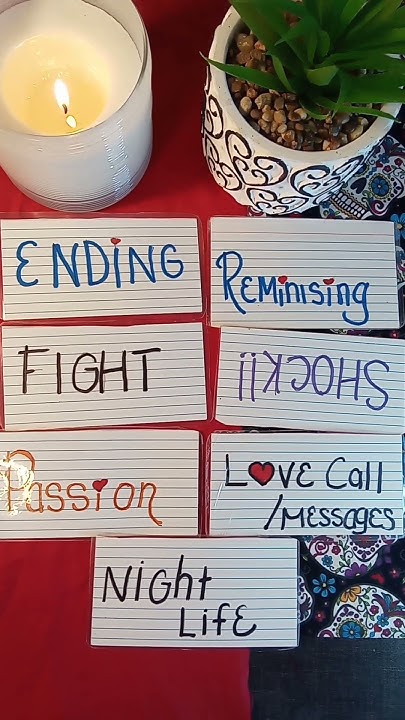 ENDiNG
REMiNiSing
FIGHT
SHOCK!!
Passion
LOVE Call
/MESSAGES
NigHt
LifE